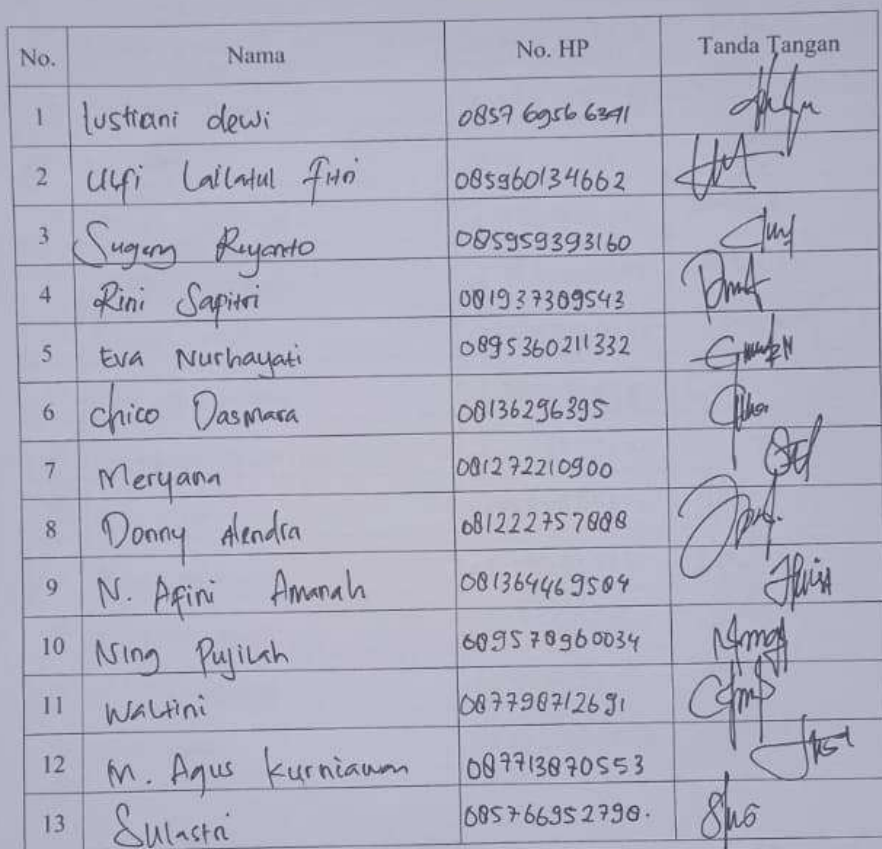 No. Nama No. HP Tanda Tangan
1 lustiani dewi 085769566391
2 Ulfi Lailatul Fitri 085960134662
3 Sugeng Riyanto 085959393160
4 Rini Sapitri 081937389543
5 Eva Nurhayati 0895360211332
6 Chico Dasmara 08136296395
7 Meryana 081272210900
8 Donny Alendra 081222757888
9 N. Afini Amanah 081364469584
10 Ning Pujilah 089570960034
11 Waltini 087798712691
12 M. Agus Kurniawan 087713870553
13 Sulastri 085766952798.